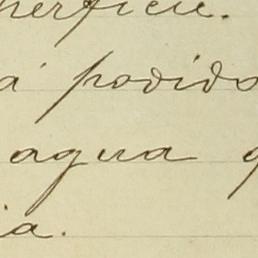 nerficie.
á podido
agua
ia.